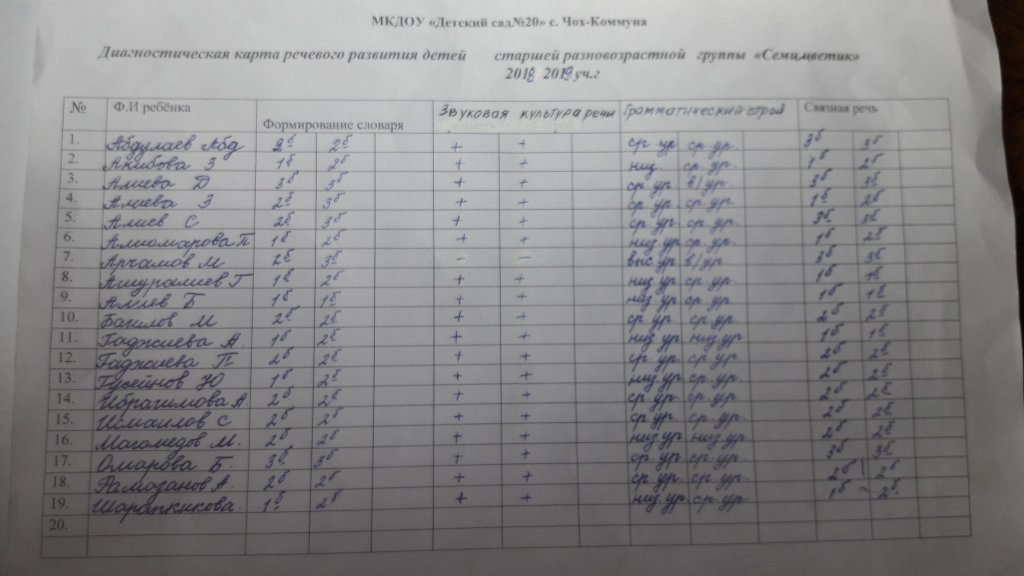 МКДОУ «Детский сад№20» с. Чох-Коммуна
Диагностическая карта речевого развития детей старшей разновозрастной группы «Семицветик»
2018 2019 уч.г
№ Ф.И ребёнка Формирование словаря Звуковая культура речи Грамматический строй Связная речь
1. Абдулаев Абд 2б 2б + + ср ур ср. ур. 3б 3б
2. Акибова З 1б 2б + + низ ср. ур. 1б 2б
3. Алиева Д 3б 3б + + ср. ур. в/ур. 3б 3б
4. Алиева З 2б 3б + + ср. ур. ср. ур. 1б 2б
5. Алиев С 2б 3б + + ср. ур. ср. ур. 3б 3б
6. Алиомарова П 1б 2б + + низ. ур. ср. ур. 1б 2б
7. Арчамов М 2б 3б - - выс. ур в/ур. 3б 3б
8. Ашуралиев Г 1б 2б + + низ. ур. ср. ур. 1б 1б
9. Алиев Б 1б 1б + + низ. ур. ср. ур. 1б 1б
10. Багилов М 2б 2б + + ср. ур. ср. ур. 2б 2б
11. Гаджиева А. 1б 2б + + низ. ур. низ. ур. 1б 1б
12. Гаджиева П 2б 2б + + ср. ур. ср. ур. 2б 2б
13. Гусейнов Ю 1б 2б + + низ. ур. ср. ур. 2б 2б
14. Ибрагимова А 2б 2б + + ср. ур. ср. ур. 2б 2б
15. Исмаилов С 2б 2б + + ср. ур. ср. ур. 2б 2б
16. Магомедов М. 2б 2б + + низ. ур. низ. ур. 2б 2б
17. Омарова Б. 3б 3б + + ср. ур. ср. ур. 3б 3б
18. Рамазанов А 2б 2б + + ср. ур. ср. ур. 2б 2б
19. 1б 2б + + низ. ур. ср. ур. 1б 2б.
20.